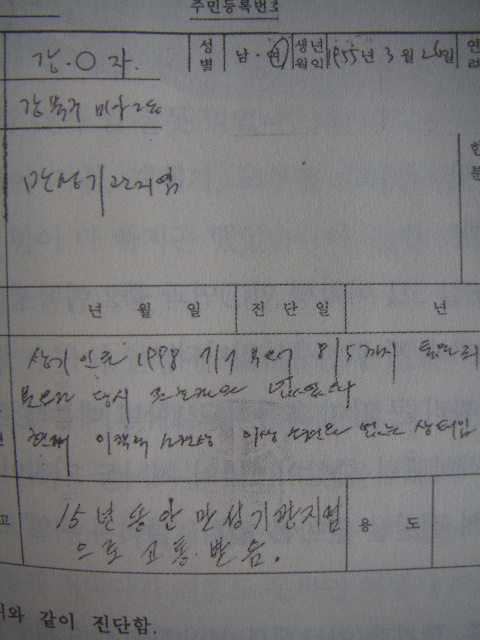 주민등록번호
강·○ 자. 성별 남·여 생년월일 1955년 3월 26일 연
강북구 미아2동
만성기관지염
년 월 일 진 단 일 년
상기인은 1998 7/7 부터 8/5까지
당시 없었다
현재 이학적 소견상 이상 소견은 없는 상태임
15년 동안 만성기관지염 용 도
으로 고통 받음.
와 같이 진단함.